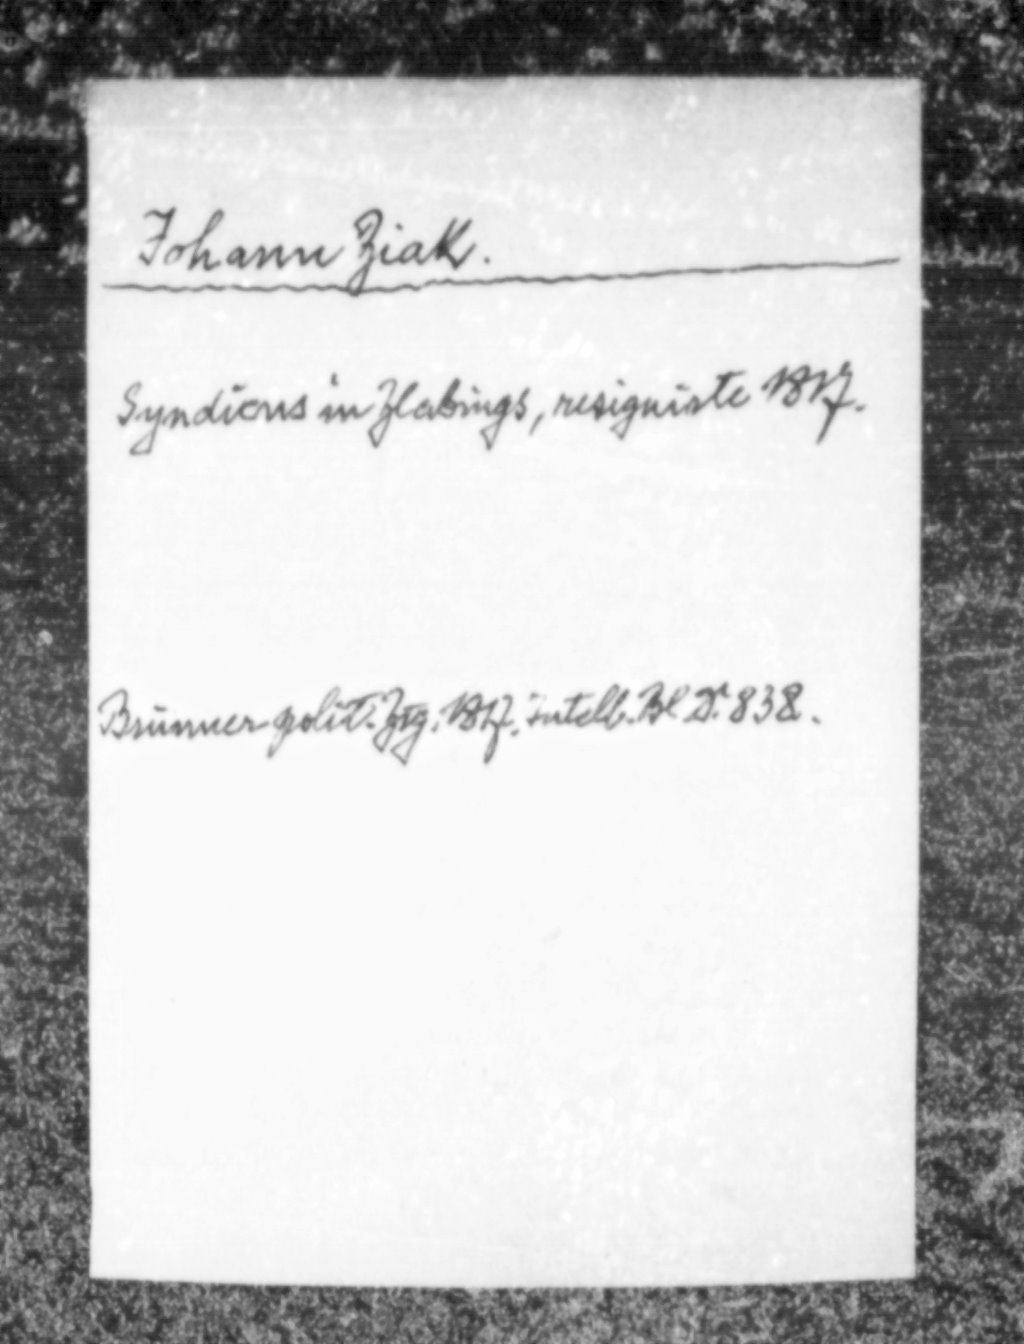 Johann Ziak.
Syndicus in Zlabings, resignirte 1817.
Brünner polit. Ztg. 1817. Intellb. Bl 838.